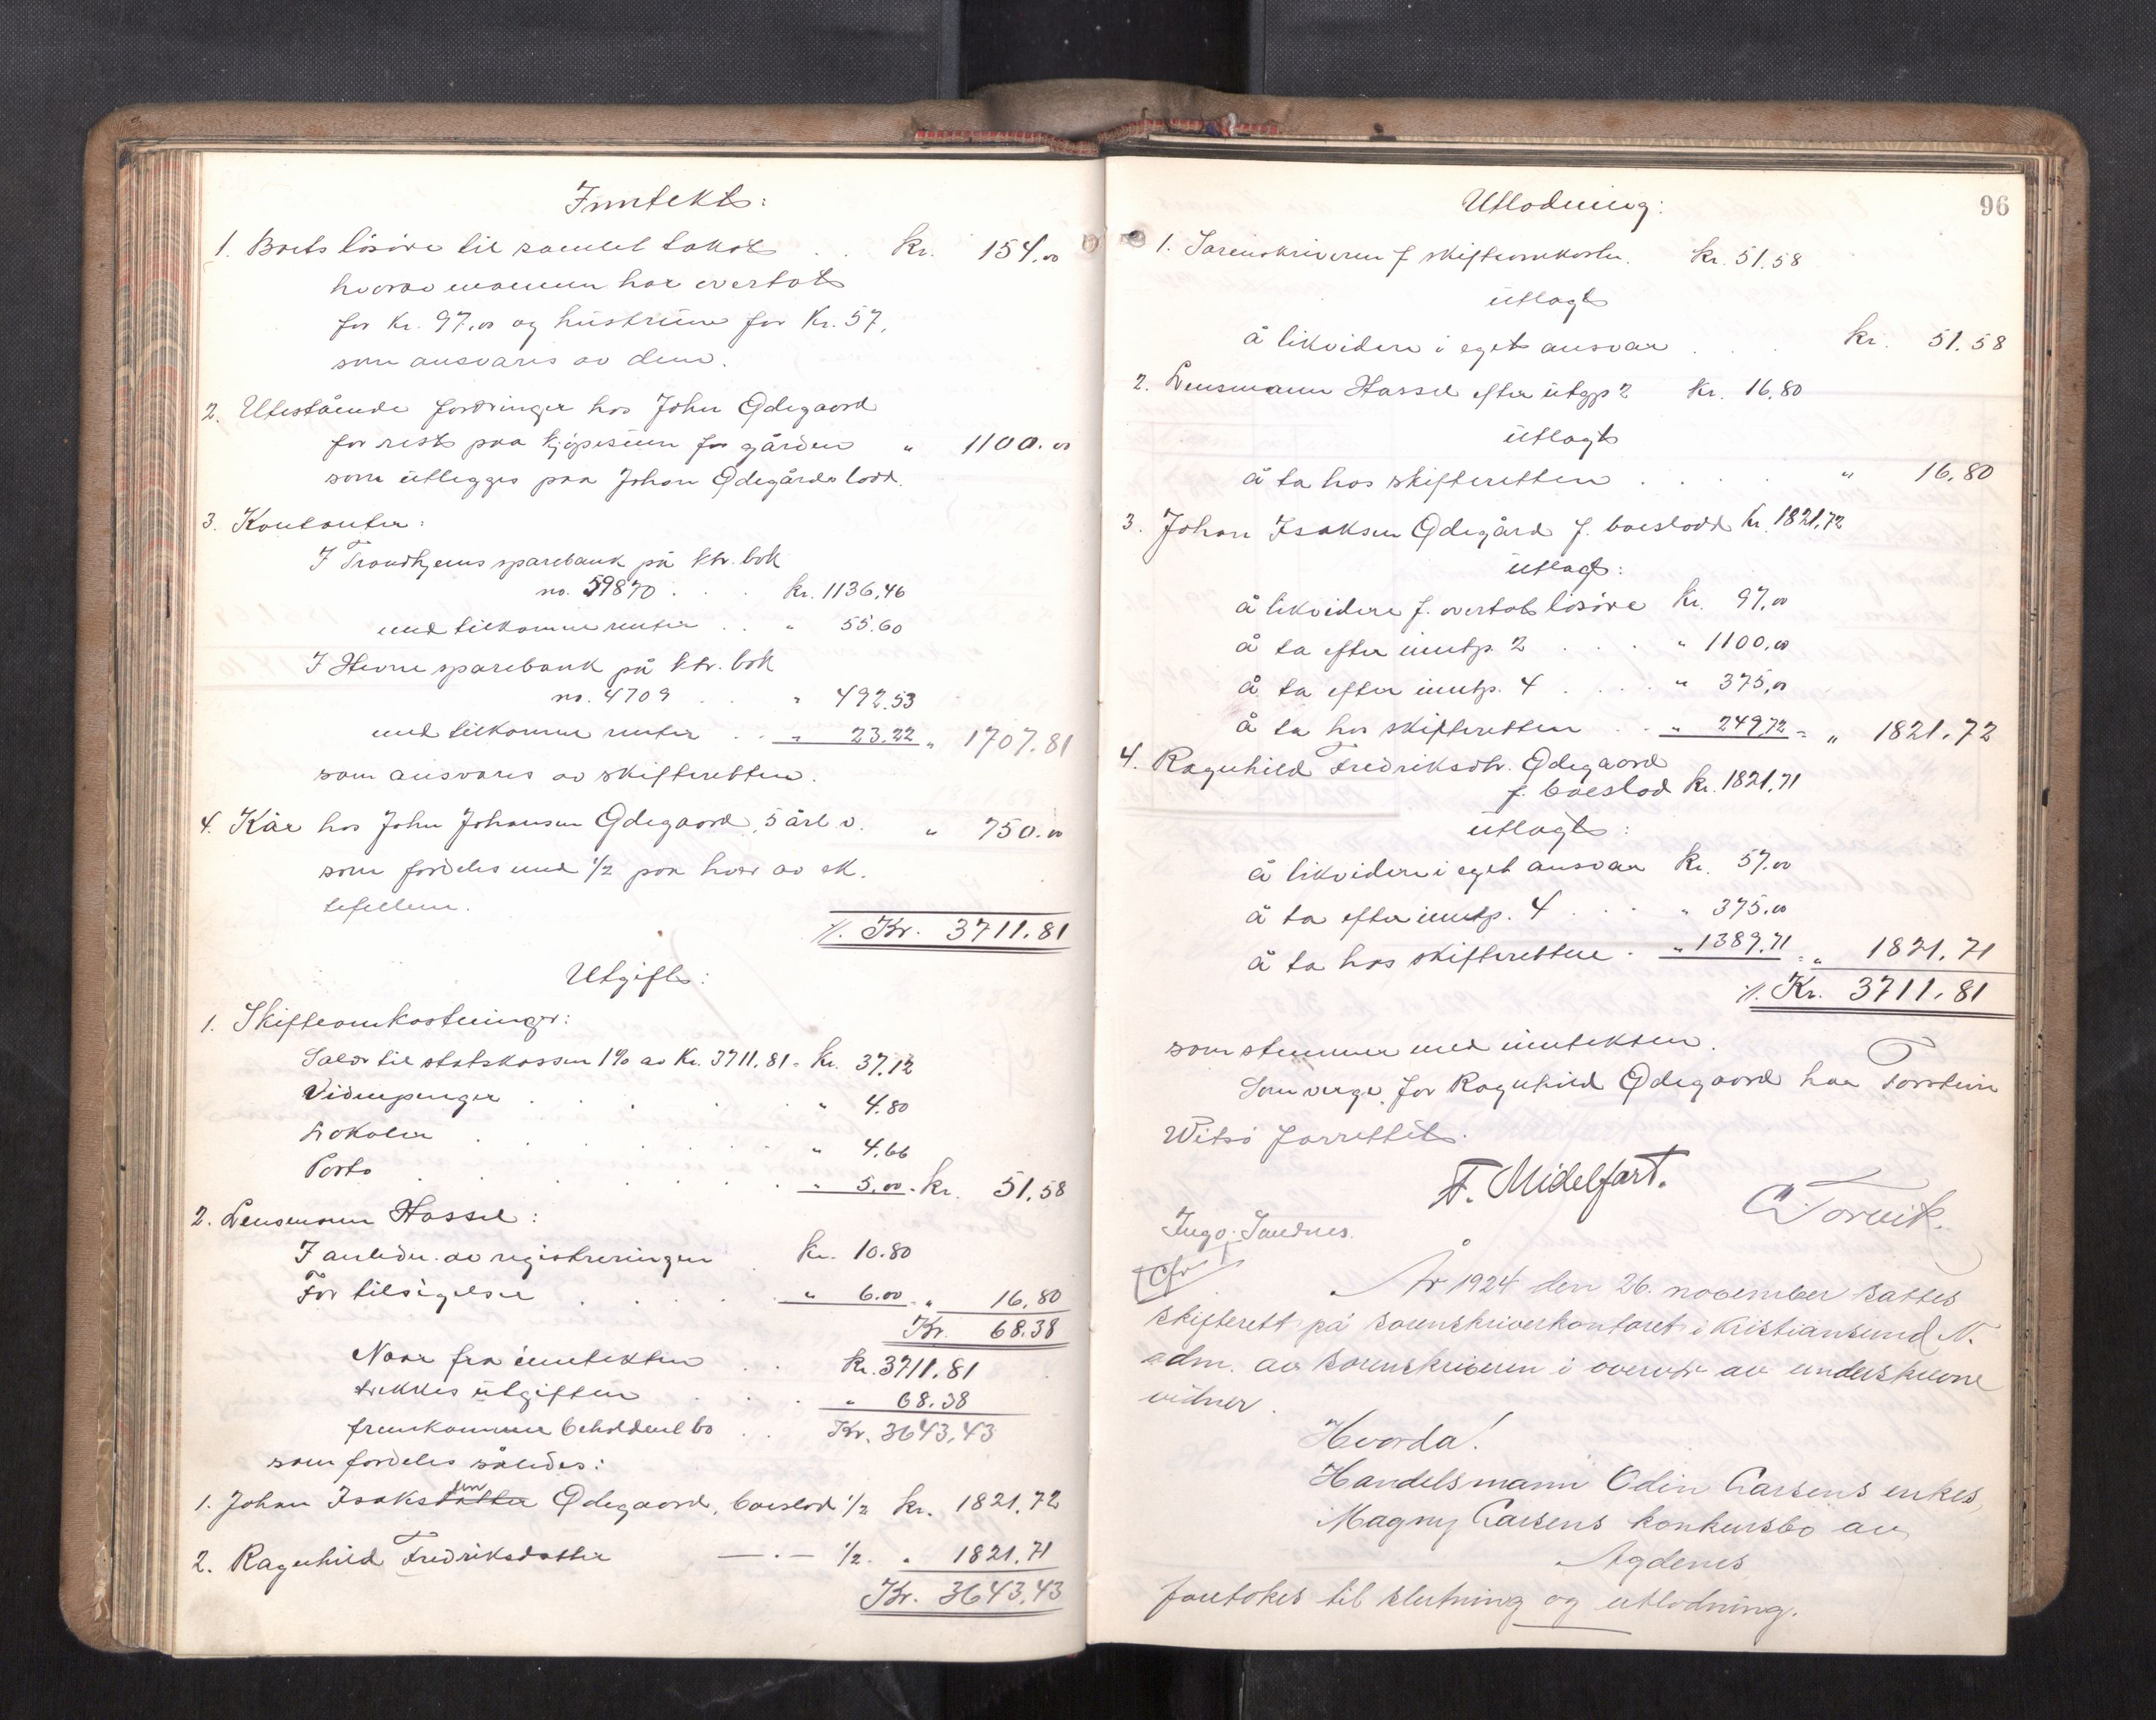 Inntekt:
1. Boets lösöre til samlet takst . . kr. 154.00
hvorav mannen har overtat
for kr. 97,00 og hustruen for kr. 57,
som ansvares av dem.
2. Utestående fordringer hos John Ødegaard
for rest paa kjöpesum for gården " 1100.00
som utlegges paa Johan Ødegårds lodd.
3. Kontanter:
I Trondhjems sparebank på ktr. bok
no. 59870 . . . kr. 1136,46
med tilkomne renter . . " 55.60
I Hevne sparebank på ktr. bok
no. 4709 . . " 492.53
med tilkomne renter . . " 23.22 " 1707.81
som ansvares av skifteretten.
4. Kår hos John Johansen Ødegaard, 5 årl. v. " 750.00
som fordeles med 1/2 paa hver av ek-
tefellene.
//. Kr. 3711.81
Utgift:
1. Skifteomkostninger:
Salær til statskassen 1% av Kr. 3711.81 = Kr. 37.12
Vidnepenger . . . . " 4.80
Lokaler . . . . " 4.66
Porto . . . . " 5.00 = kr. 51.58
2. Lensmann Hassel:
I anledn. av registreringen . kr. 10.80
For tilsigelse . . . . " 6.00 = " 16.80
Kr. 68.38
Naar fra inntekten . . kr. 3711.81
trekkes utgiften . . . " 68.38
fremkommer beholdent bo . . Kr. 3643,43
som fordeles således:
1. Johan Isaksdatter sen Ødegaard, boeslod 1/2 kr. 1821.72
2. Ragnhild Fredriksdatter —.— 1/2 . " 1821.71
Kr. 3643,43
96
Utlodning:
1. Sorenskriveren f. skifteomkostn. kr. 51.58
utlagt
å likvidere i eget ansvar . . . kr. 51.58
2. Lensmann Hassel efter utgp 2 kr. 16.80
utlagt
å ta hos skifteretten . . . . " 16,80
3. Johan Isaksen Ødegård f. boeslodd kr. 1821,72
utlagt:
å likvidere f. overtat lösöre kr. 97,00
å ta efter inntp. 2 . . . " 1100,00
å ta efter inntp. 4 . . . . " 375,00
å ta hos skifteretten . . " 249.72 = " 1821.72
4. Ragnhild Fredriksdtr. Ødegaard
f. boeslod kr. 1821.71
utlagt:
å likvidere i eget ansvar kr. 57.00
å ta efter inntp. 4 . . . " 375.00
å ta hos skifteretten . " 1389.71 = " 1821.71
//. Kr. 3711.81
som stemmer med inntekten.
Som verge for Ragnhild Ødegaard har Torstein
Witsö forrettet.
F. Midelfart.
C Torvik.
Ingv. Sandnes.
Cfr
År 1924 den 26. november sattes
skifterett på sorenskriverkontoret i Kristiansund N.
adm. av sorenskriveren i overvær av underskrevne
vidner.
Hvorda!
Handelsmann Odin Larsens enkes,
Magny Larsens konkursbo av
Agdenes
foretokes til slutning og utlodning.